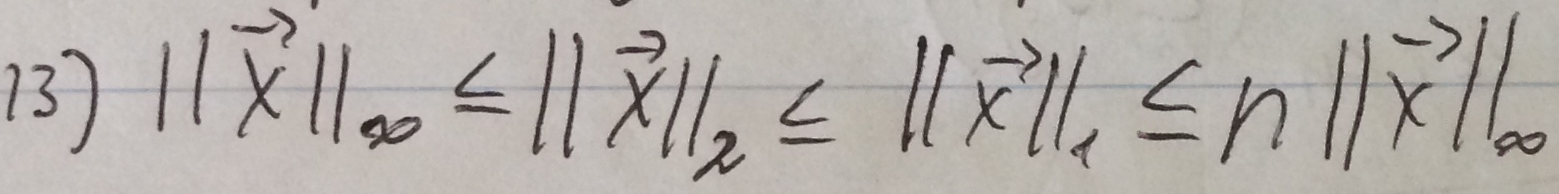 13) ||x⃗||∞ ≤ ||x⃗||₂ ≤ ||x⃗||₁ ≤ n ||x⃗||∞